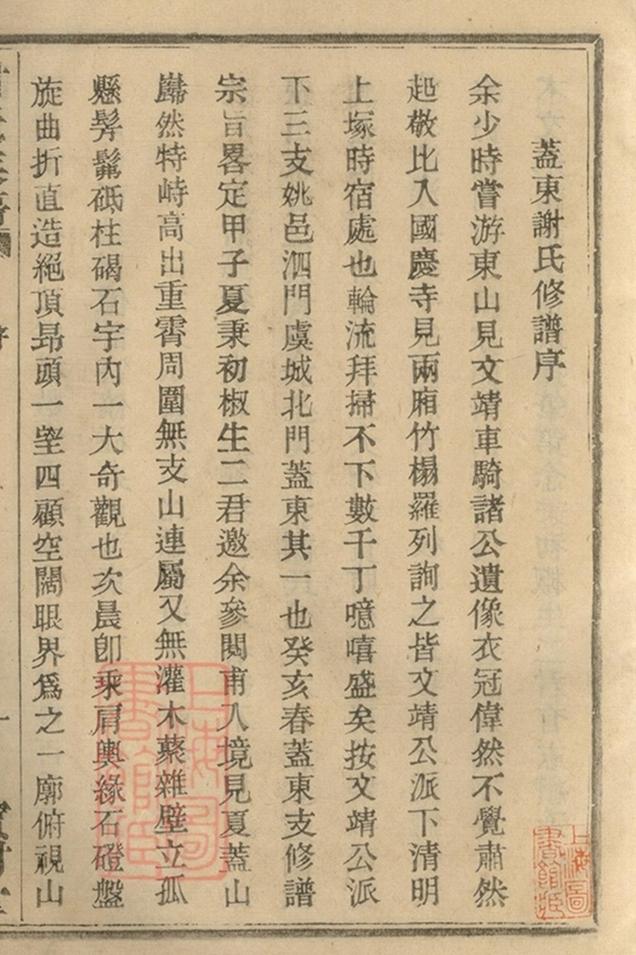 蓋東謝氏修譜序
余少時嘗游東山見文靖車騎諸公遺像衣冠偉然不覺肅然
起敬比入國慶寺見兩廂竹榻羅列詢之皆文靖公派下清明
上塚時宿處也輪流拜掃不下數千丁噫嘻盛矣按文靖公派
下三支姚邑泗門虞城北門蓋東其一也癸亥春蓋東支修譜
宗旨畧定甲子夏秉初椒生二君邀余參閱甫入境見夏蓋山
巋然特峙高出重霄周圍無支山連屬又無灌木蘩雜壁立孤
懸髣髴砥柱碣石宇內一大奇觀也次晨卽乘肩輿緣石磴盤
旋曲折直造絕頂昂頭一望四顧空闊眼界爲之一廓俯視山
序
一
上海圖書館藏
上海圖書館藏